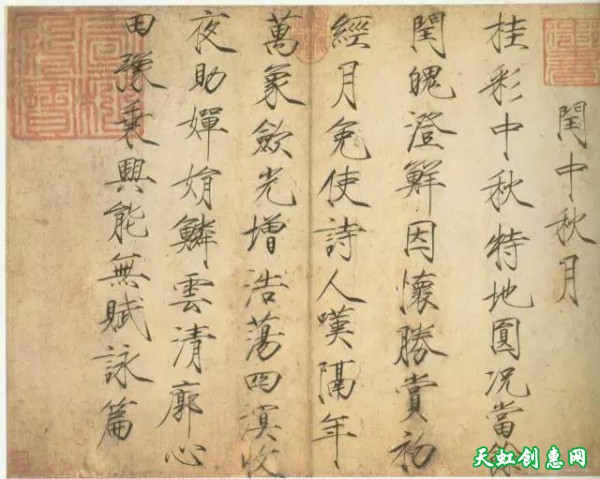 閏中秋月
桂彩中秋特地圓況當餘
閏魄澄鮮因懷勝賞初
經月免使詩人嘆隔年
萬象歛光增浩蕩四溟收
夜助嬋娟鱗雲清廓心
田豫乘興能無賦詠篇
天虹创惠网